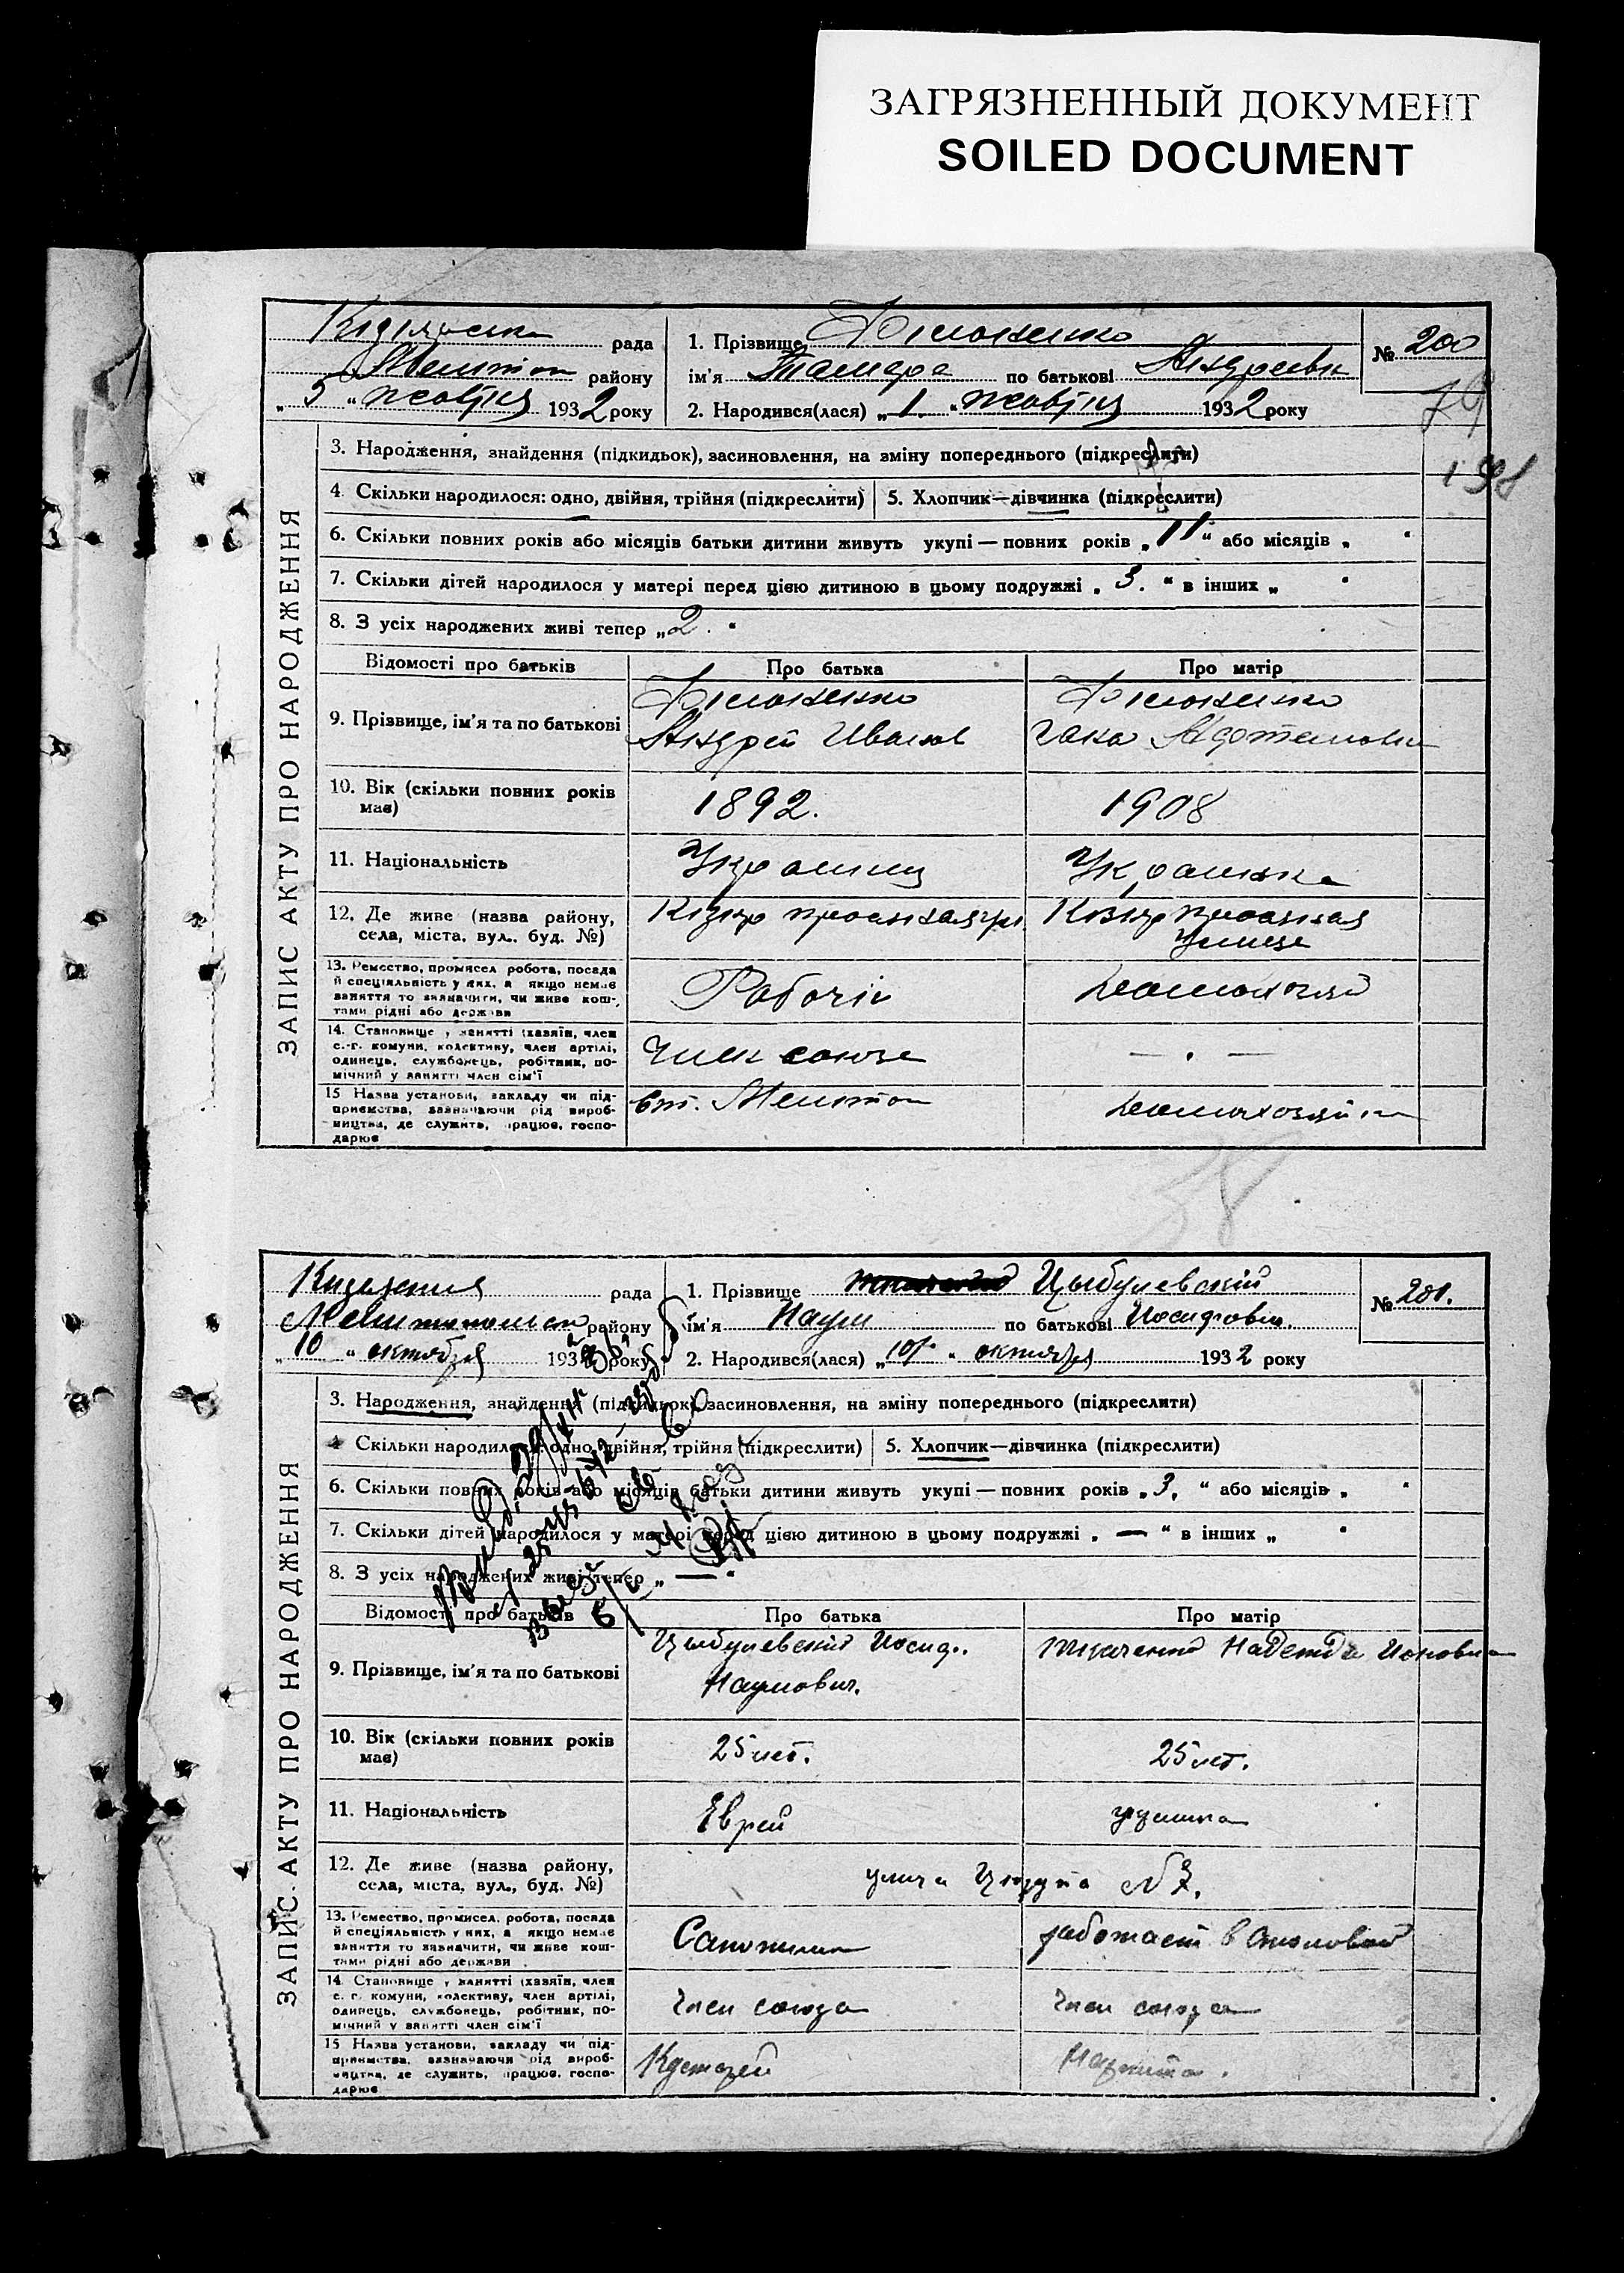 ЗАГРЯЗНЕННЫЙ ДОКУМЕНТ
SOILED DOCUMENT
ЗАПИС АКТУ ПРО НАРОДЖЕННЯ
рада
району
„ 5 “ жовтня 1932 року
1. Прізвище
ім'я Тамара по батькові Андреевн
2. Народився(лася) „ 1. “ жовтня 1932 року
№ 200
79
198
3. Народження, знайдення (підкидьок), засиновлення, на зміну попереднього (підкреслити)
4 Скільки народилося: одно, двійня, трійня (підкреслити)
5. Хлопчик—дівчинка (підкреслити)
6. Скільки повних років або місяців батьки дитини живуть укупі — повних років „ 11 “ або місяців „ “
7. Скільки дітей народилося у матері перед цією дитиною в цьому подружжі „ 3. “ в інших „ “
8. З усіх народжених живі тепер „ 2. “
Відомості про батьків
Про батька
Про матір
9. Прізвище, ім'я та по батькові
Андрей Иванов
10. Вік (скільки повних років має)
1892.
1908
11. Національність
Украинец
Украинка
12. Де живе (назва району, села, міста, вул., буд. №)
13. Ремество, промисел робота, посада й спеціяльність у них, а якщо немає заняття то зазначити, чи живе коштами рідні або держави
Рабочій
домохозяй
14. Становище у занятті (хазяїн, член с.-г. комуни, колективу, член артілі, одинець, службовець, робітник, помічний у занятті член сім'ї
Член союза
— . —
15 Назва установи, закладу чи підприємства, зазначаючи рід виробництва, де служить, працює, господарює
ст. Мелитоп
домохозяйка
38
ЗАПИС АКТУ ПРО НАРОДЖЕННЯ
рада
Мелитопольск району
„ 10 “ октября 1932 року
1. Прізвище Цыбулевскій
ім'я Наум по батькові Иосифович.
2. Народився(лася) „ 10/ “ октября 1932 року
№ 201.
3. Народження, знайдення (підкидьок) засиновлення, на зміну попереднього (підкреслити)
4 Скільки народилося: одно, двійня, трійня (підкреслити)
5. Хлопчик—дівчинка (підкреслити)
6. Скільки повних років або місяців батьки дитини живуть укупі — повних років „ 3, “ або місяців „ “
7. Скільки дітей народилося у матері перед цією дитиною в цьому подружжі „ — “ в інших „ “
8. З усіх народжених живі тепер „ — “
Відомості про батьків
Про батька
Про матір
9. Прізвище, ім'я та по батькові
Цыбулевский Иосиф.
Наумович.
Ткаченко Надежда Ионовна
10. Вік (скільки повних років має)
25 лет.
25 лет.
11. Національність
Еврей
12. Де живе (назва району, села, міста, вул., буд. №)
улица Цюрупа №
13. Ремество, промисел, робота, посада й спеціяльність у них, а якщо немає заняття то зазначити, чи живе коштами рідні або держави
Сапожник
работает в столовой
14. Становище у занятті (хазяїн, член с. г. комуни, колективу, член артілі, одинець, службовець, робітник, помічний у занятті член сім'ї
Член союза
Член союза
15 Назва установи, закладу чи підприємства, зазначаючи рід виробництва, де служить, працює, господарює
Нарпита.